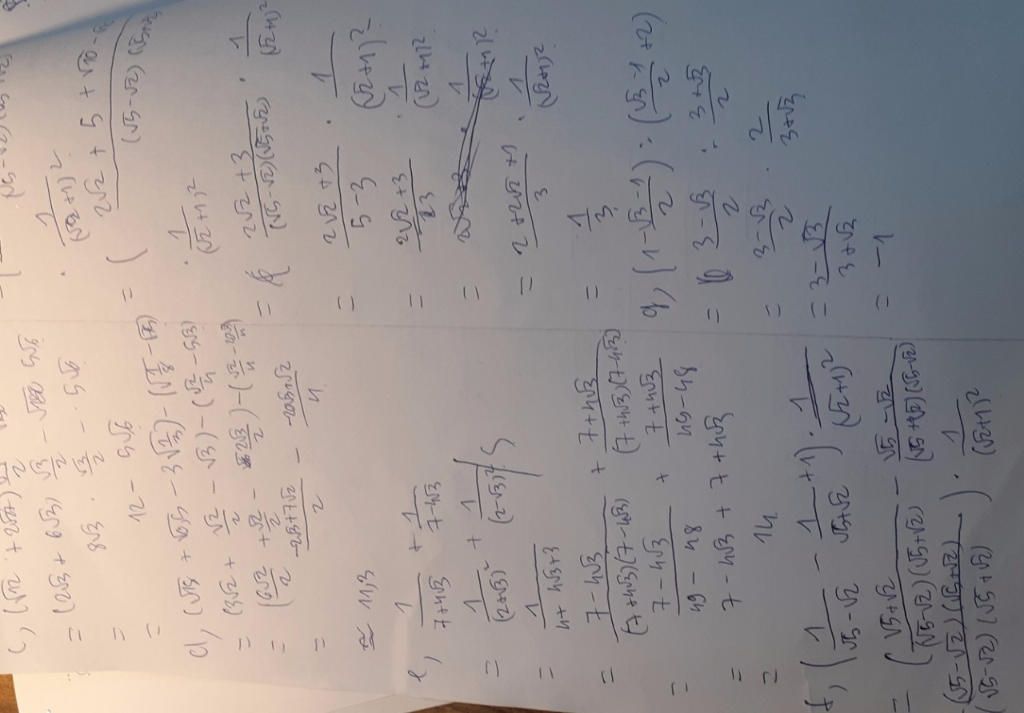 c, (√12 + 2√27) √3/2 - √150
= (2√3 + 6√3) √3/2 - 5√6
= 8√3 · √3/2 - 5√6
= 12 - 5√6
d, (√18 + √0,5 - 3√(1/3)) - (√(1/8) - √75)
= (3√2 + √2/2 - √3) - (√2/4 - 5√3)
= (6√2/2 + √2/2 - 2√3/2) - (√2/4 - 20√3/4)
= (-2√3+7√2)/2 -
≈ 11,3
e, 1/(7+4√3) + 1/(7-4√3)
= 1/(2+√3)² + 1/(2-√3)²
= 1/(4+4√3+3)
= (7-4√3)/((7+4√3)(7-4√3)) + (7+4√3)/((7+4√3)(7-4√3))
= (7-4√3)/(49-48) + (7+4√3)/(49-48)
= 7-4√3 + 7+4√3
= 14
f, (1/(√5-√2) - 1/(√5+√2) + 1) · 1/(√2+1)²
= ((√5+√2)/((√5-√2)(√5+√2)) - (√5-√2)/((√5+√2)(√5-√2))
(√5-√2)(√5+√2)/((√5-√2)(√5+√2))) · 1/(√2+1)²
· 1/(√2+1)²
= (2√2 + 5 + √10 -
(√5-√2)(√5+√2)
· 1/(√2+1)²
= (2√2+3)/((√5-√2)(√5+√2)) · 1/(√2+1)²
= (2√2+3)/(5-3) · 1/(√2+1)²
= (2√2+3)/3 · 1/(√2+1)²
= 1/(√2+1)²
= (2+2√2+1)/3 · 1/(√2+1)²
= 1/3
g, (1 - (√3-1)/2) : ((√3-1)/2 + 2)
= (3-√3)/2 : (3+√3)/2
= (3-√3)/2 · 2/(3+√3)
= (3-√3)/(3+√3)
= -1